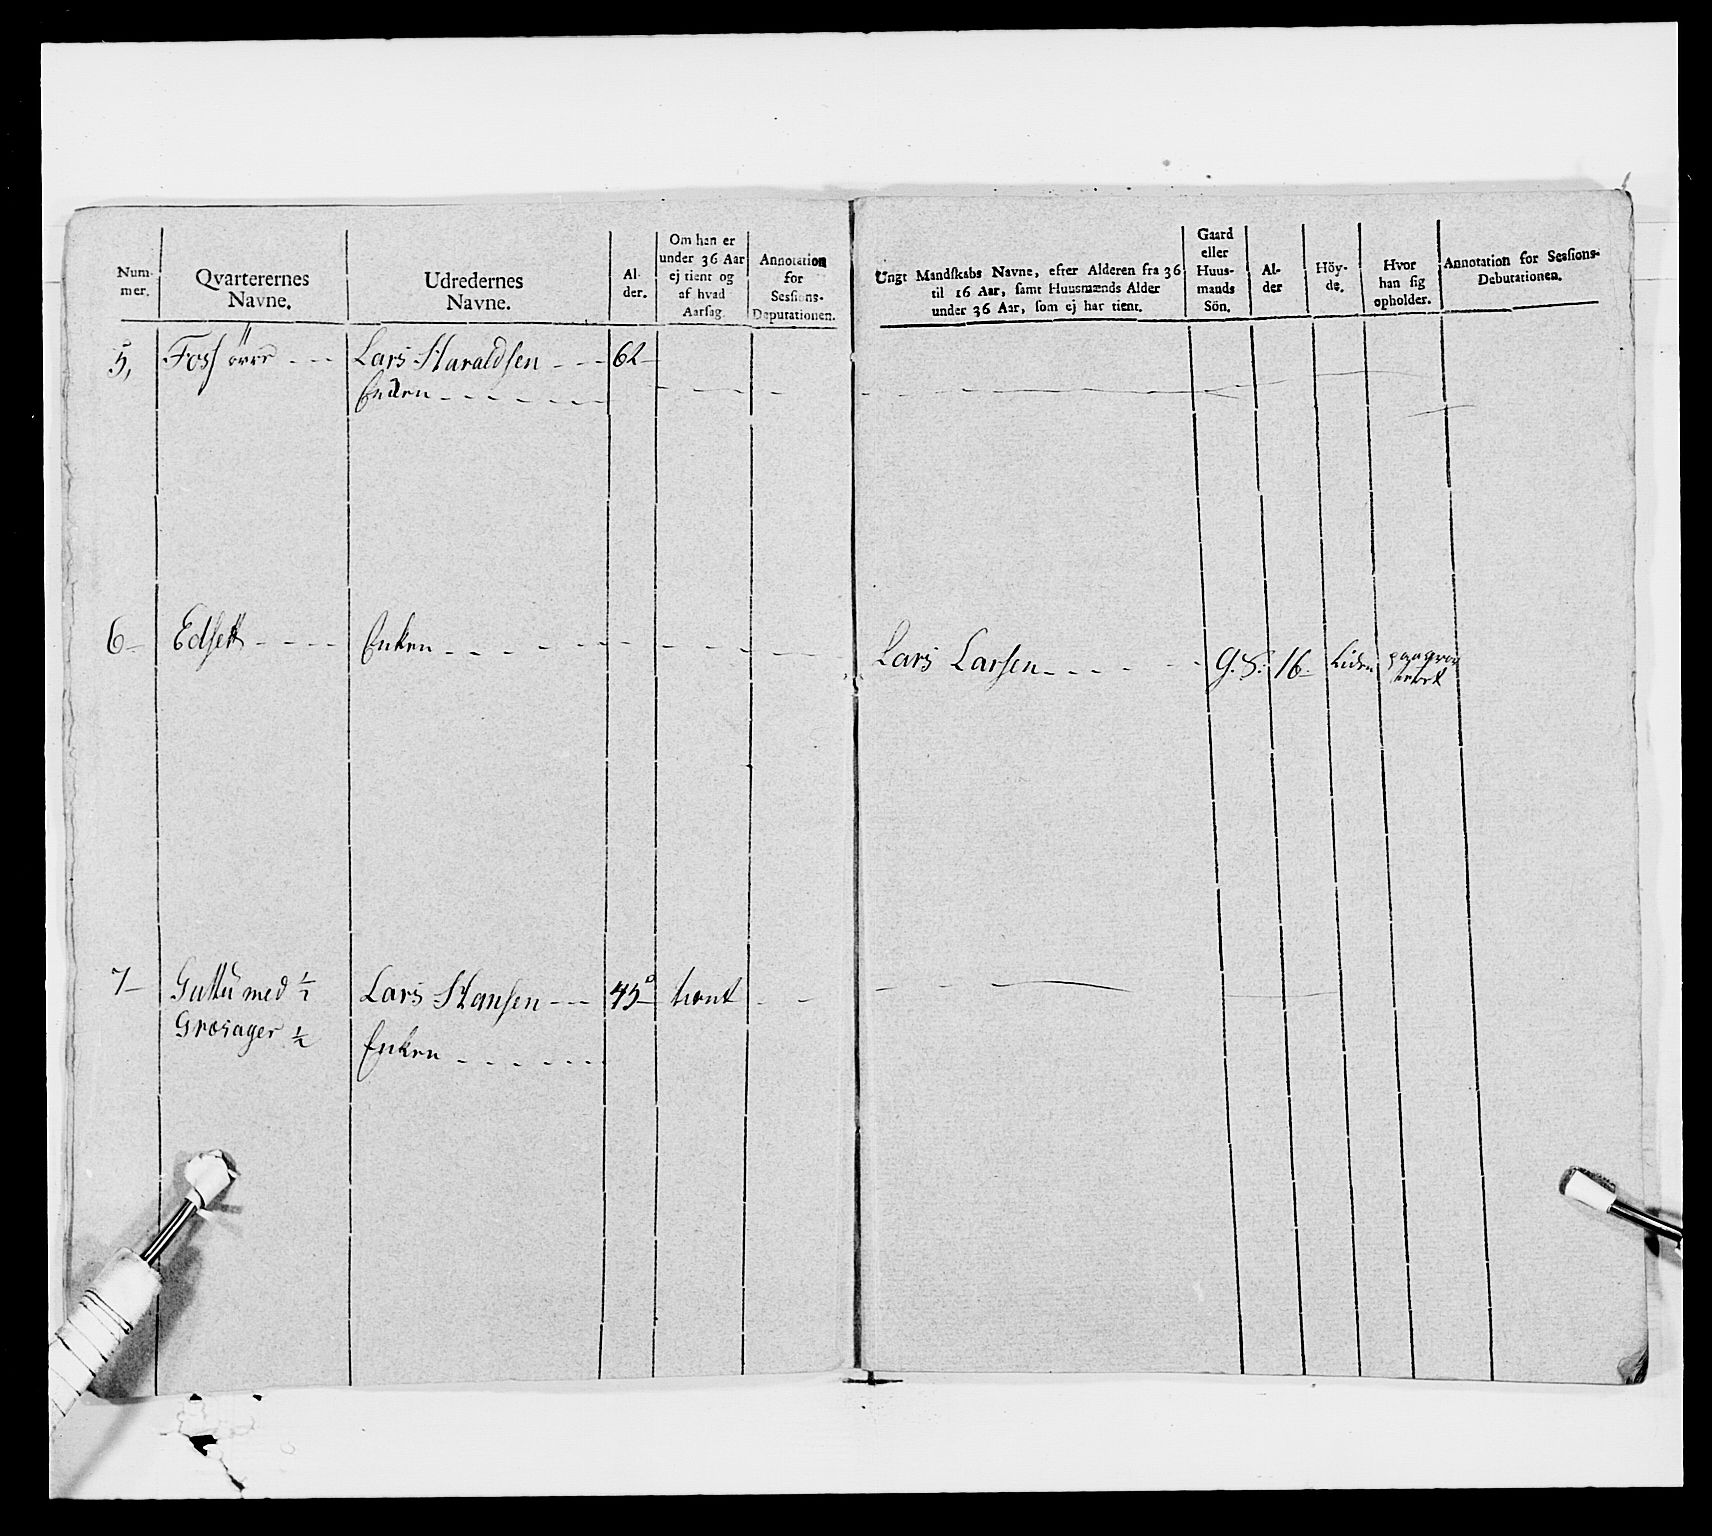 Num-
mer.
Qvarterernes
Navne.
Udredernes
Navne.
Al-
der.
Om han er
under 36 Aar
ej tient og
af hvad
Aarsag.
Annotation
for
Sessions-
Deputationen.
Ungt Mandskabs Navne, efter Alderen fra 36
til 16 Aar, samt Huusmænds Alder
under 36 Aar, som ej har tient.
Gaard
eller
Huus-
mands
Sön.
Al-
der
Höy-
de.
Hvor
han sig
opholder.
Annotation for Sessions-
Debutationen.
5, Foss övre Lars Haraldsen 62
Enken
6 Edsett Enken Lars Larsen G. S. 16 Liden paaqvar
teret
7 Guttu med 1/2 Lars Hansen 45 tient
Grøsager 1/2
Enken